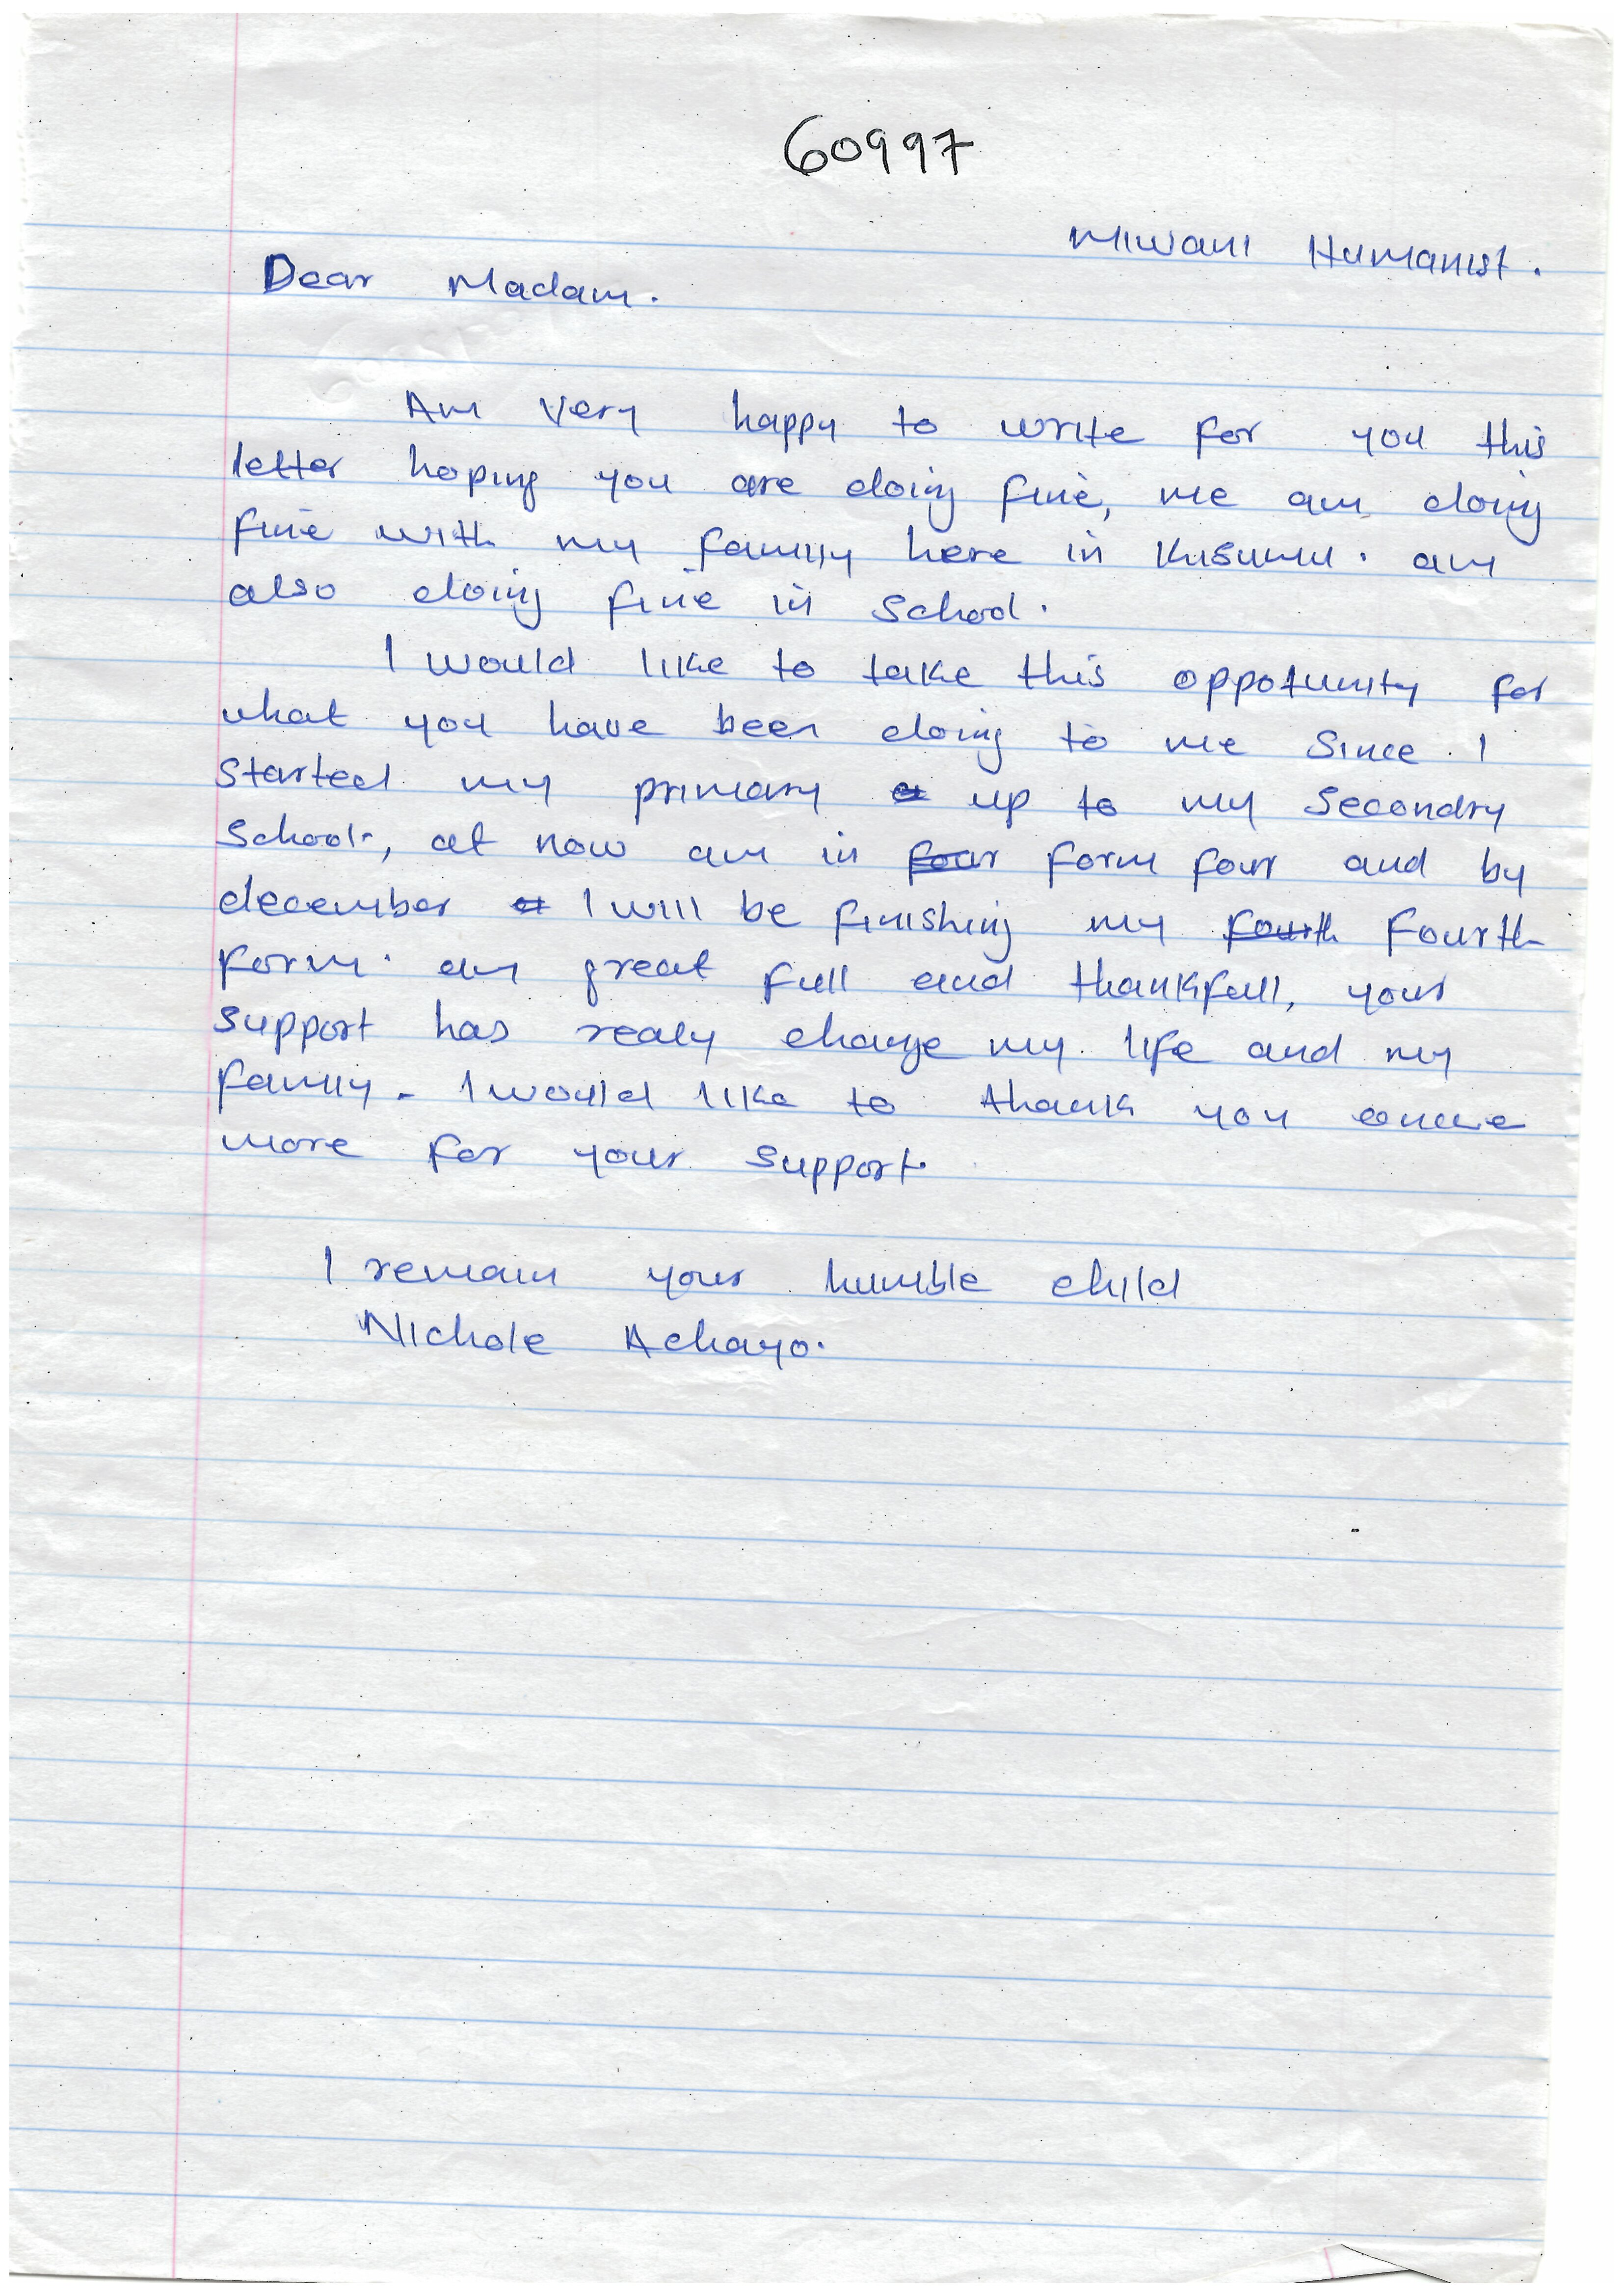 60997
Miwani Humanist.
Dear Madam.
Am very happy to write for you this
letter hoping you are doing fine, me am doing
fine with my family here in Kisumu. am
also doing fine in school.
I would like to take this oppotunity for
what you have been doing to me since I
started my primary up to my secondry
school, at now am in four form four and by
december I will be finishing my fourth fourth
form. am great full and thankfull, your
support has realy change my life and my
family. I would like to thank you
more for your support.
I remain your humble child
Nichole Achayo.